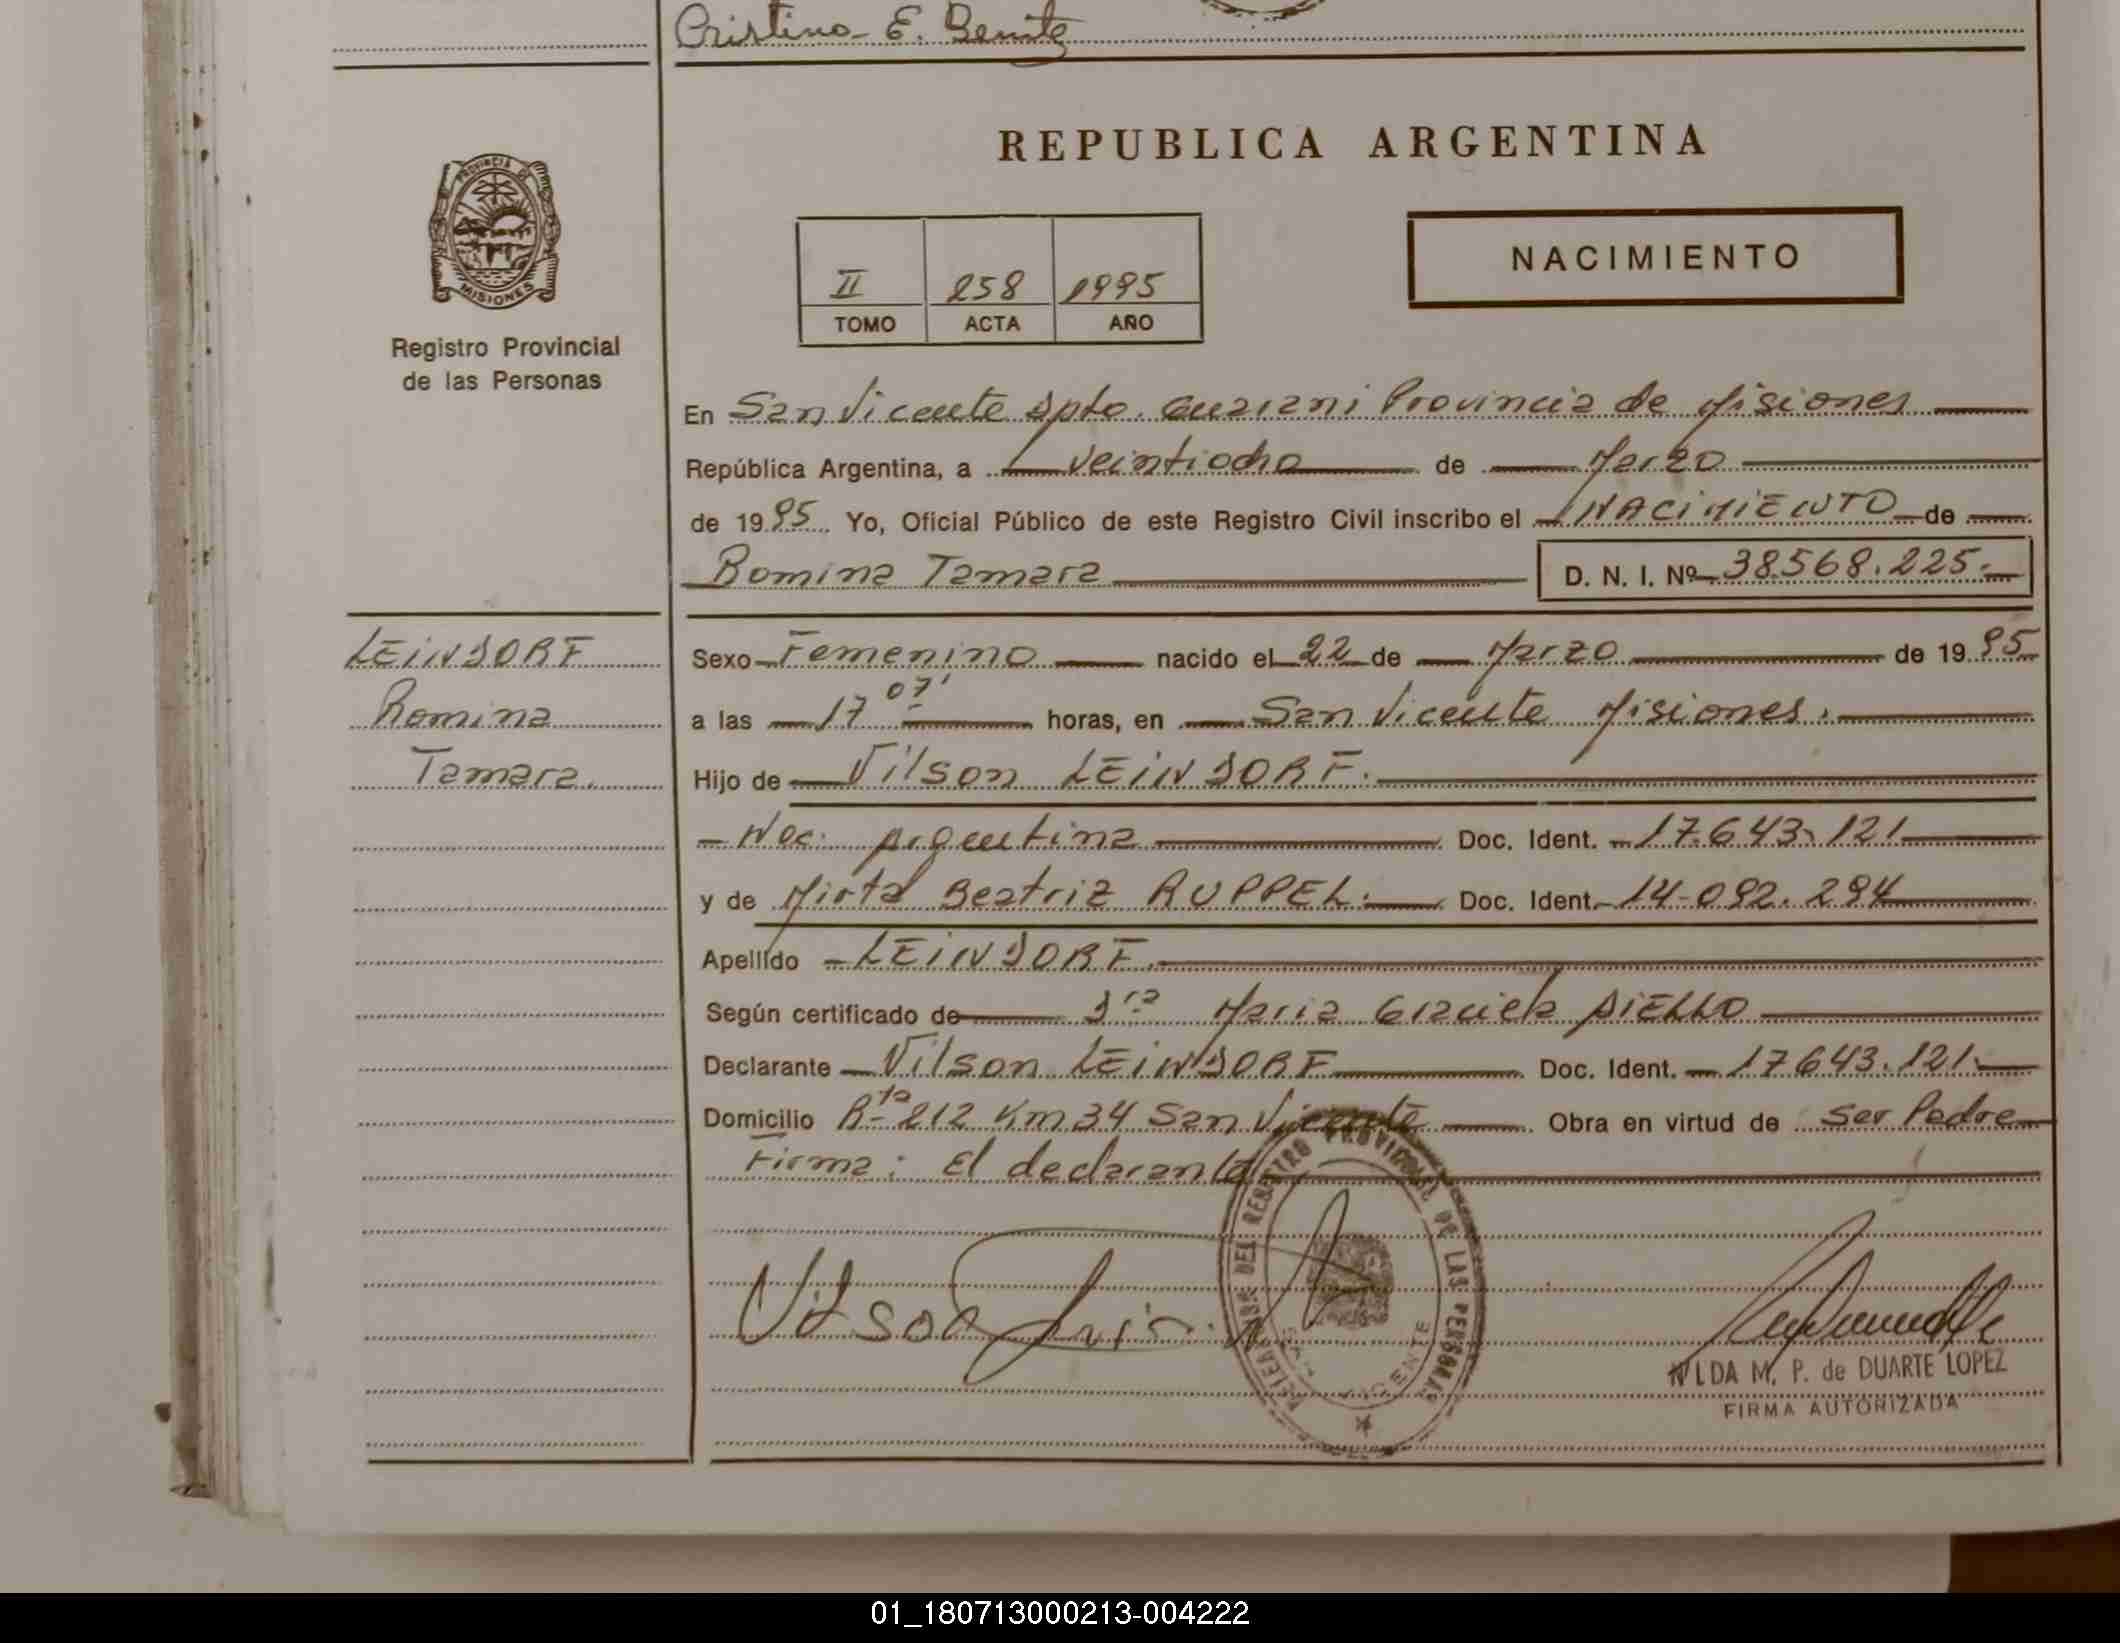 Cristino E. Benitz
REPUBLICA ARGENTINA
PROVINCIA DE
MISIONES
Registro Provincial
de las Personas
II 258 1995
TOMO ACTA AÑO
NACIMIENTO
En San Vicente Dpto. Guarani Provincia de Misiones
República Argentina, a veintiocho de Marzo
de 1995 Yo, Oficial Público de este Registro Civil inscribo el NACIMIENTO de
Romina Tamara D. N. I. Nº 38.568.225.-
LEINDORF
Romina
Tamara.
Sexo Femenino nacido el 22 de Marzo de 1995
a las 17 07' horas, en San Vicente Misiones.
Hijo de Vilson LEINDORF.
Nac. Argentina Doc. Ident. 17.643.121
y de Mirta Beatriz RUPPEL. Doc. Ident. 14-092.294
Apellido LEINDORF.
Según certificado de Dra Maria Graciela AIELLO
Declarante Vilson LEINDORF Doc. Ident. 17643.121.
Domicilio Rta 212 Km 34 San Vicente Obra en virtud de Ser Padre
Firma: El declarante
Vilson
DEL REGISTRO PROVINCIAL DE LAS PERSONAS
SAN VICENTE
NILDA M. P. de DUARTE LOPEZ
FIRMA AUTORIZADA
01_180713000213-004222